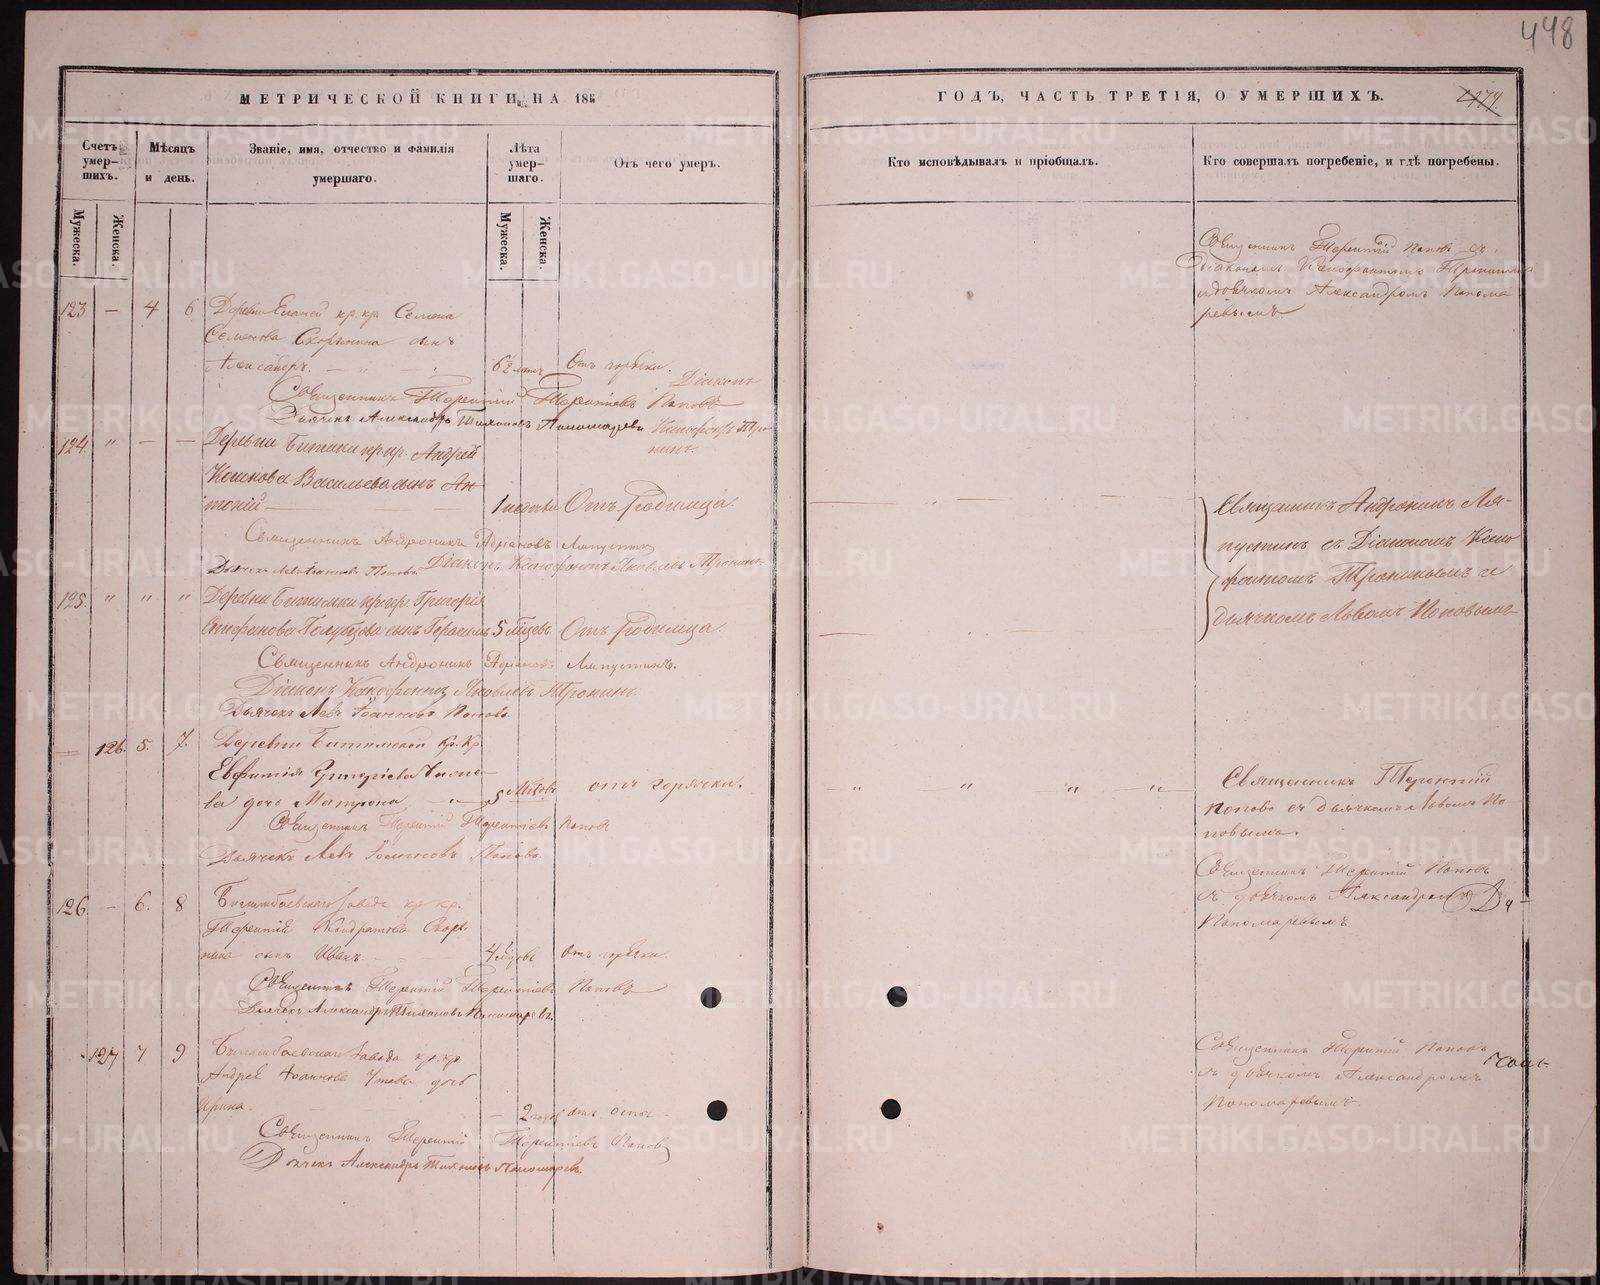 448
МЕТРИЧЕСКОЙ КНИГИ НА 185
ГОДЪ, ЧАСТЬ ТРЕТІЯ, О УМЕРШИХЪ.
Счетъ умер-шихъ.
Мужеска.
Женска.
Мѣсяцъ и день.
Званіе, имя, отчество и фамилія умершаго.
Лѣта умер-шаго.
Мужеска.
Женска.
Отъ чего умеръ.
Кто исповѣдывалъ и пріобщалъ.
Кто совершалъ погребеніе, и гдѣ погребены.
Священникъ Терентій Поповъ съ
діакономъ Ксенофонтомъ
и дьячкомъ Александромъ Понома
ревымъ
123 — 4 6 Деревни кр. кр. Семена
Семенова Скорынина сынъ
Александръ. Отъ горячки.
Священникъ Терентій Терентіевъ Поповъ
Діаконъ
Дьячекъ Александръ Тихоновъ Пономаревъ Ксенофонтъ Тро
нинъ.
124. " — — Деревни Битимки кр. кр. Андрей
Васильева сынъ Ан-
тоній 1 недѣли Отъ Родимца.
Священникъ Андроникъ Адріановъ Ляпустинъ
Дьячекъ Левъ Іоанновъ Поповъ Діаконъ Ксенофонтъ Яковлевъ Тронинъ
Священникъ Андроникъ Ля-
пустинъ съ Діакономъ Ксено
фонтомъ Трониным и
Дьячкомъ Львомъ Поповымъ
125. " " " Деревни Битимки кр. кр. Григорія
Стефанова сынъ Герасимъ 5 Мѣсцевъ Отъ Родимца.
Священникъ Андроникъ Адріановъ Ляпустинъ.
Діаконъ Ксенофонтъ Яковлевъ Тронинъ
Дьячекъ Левъ Іоанновъ Поповъ.
— 126. 5. 7. Деревни Битимской кр. кр.
Евфимія Григоріева
ва дочь Матрона 5 отъ горячки.
Священникъ Терентій Терентіевъ Поповъ
Дьячекъ Левъ Іоанновъ Поповъ.
Священникъ Терентій
Поповъ съ дьячкомъ Львомъ По-
повымъ.
126. — 6. 8 Билимбаевскаго Завода кр. кр.
Терентій Кондратова Скоры
нина сынъ Иванъ. 4 отъ горячки.
Священникъ Терентій Терентіевъ Поповъ
Дьячекъ Александръ Тихоновъ Пономаревъ.
Священникъ Терентій Поповъ
съ дьячкомъ Александромъ
Пономаревымъ
127 7 9 Билимбаевскаго Завода кр. кр.
Андрея Іоаннова дочь
Ирина. — 2 года отъ оспы
Священникъ Терентій Терентіевъ Поповъ
Дьячекъ Александръ Тихоновъ Пономаревъ.
Священникъ Терентій Поповъ
съ дьячкомъ Александромъ
Пономаревымъ
METRIKI.GASO-URAL.RU